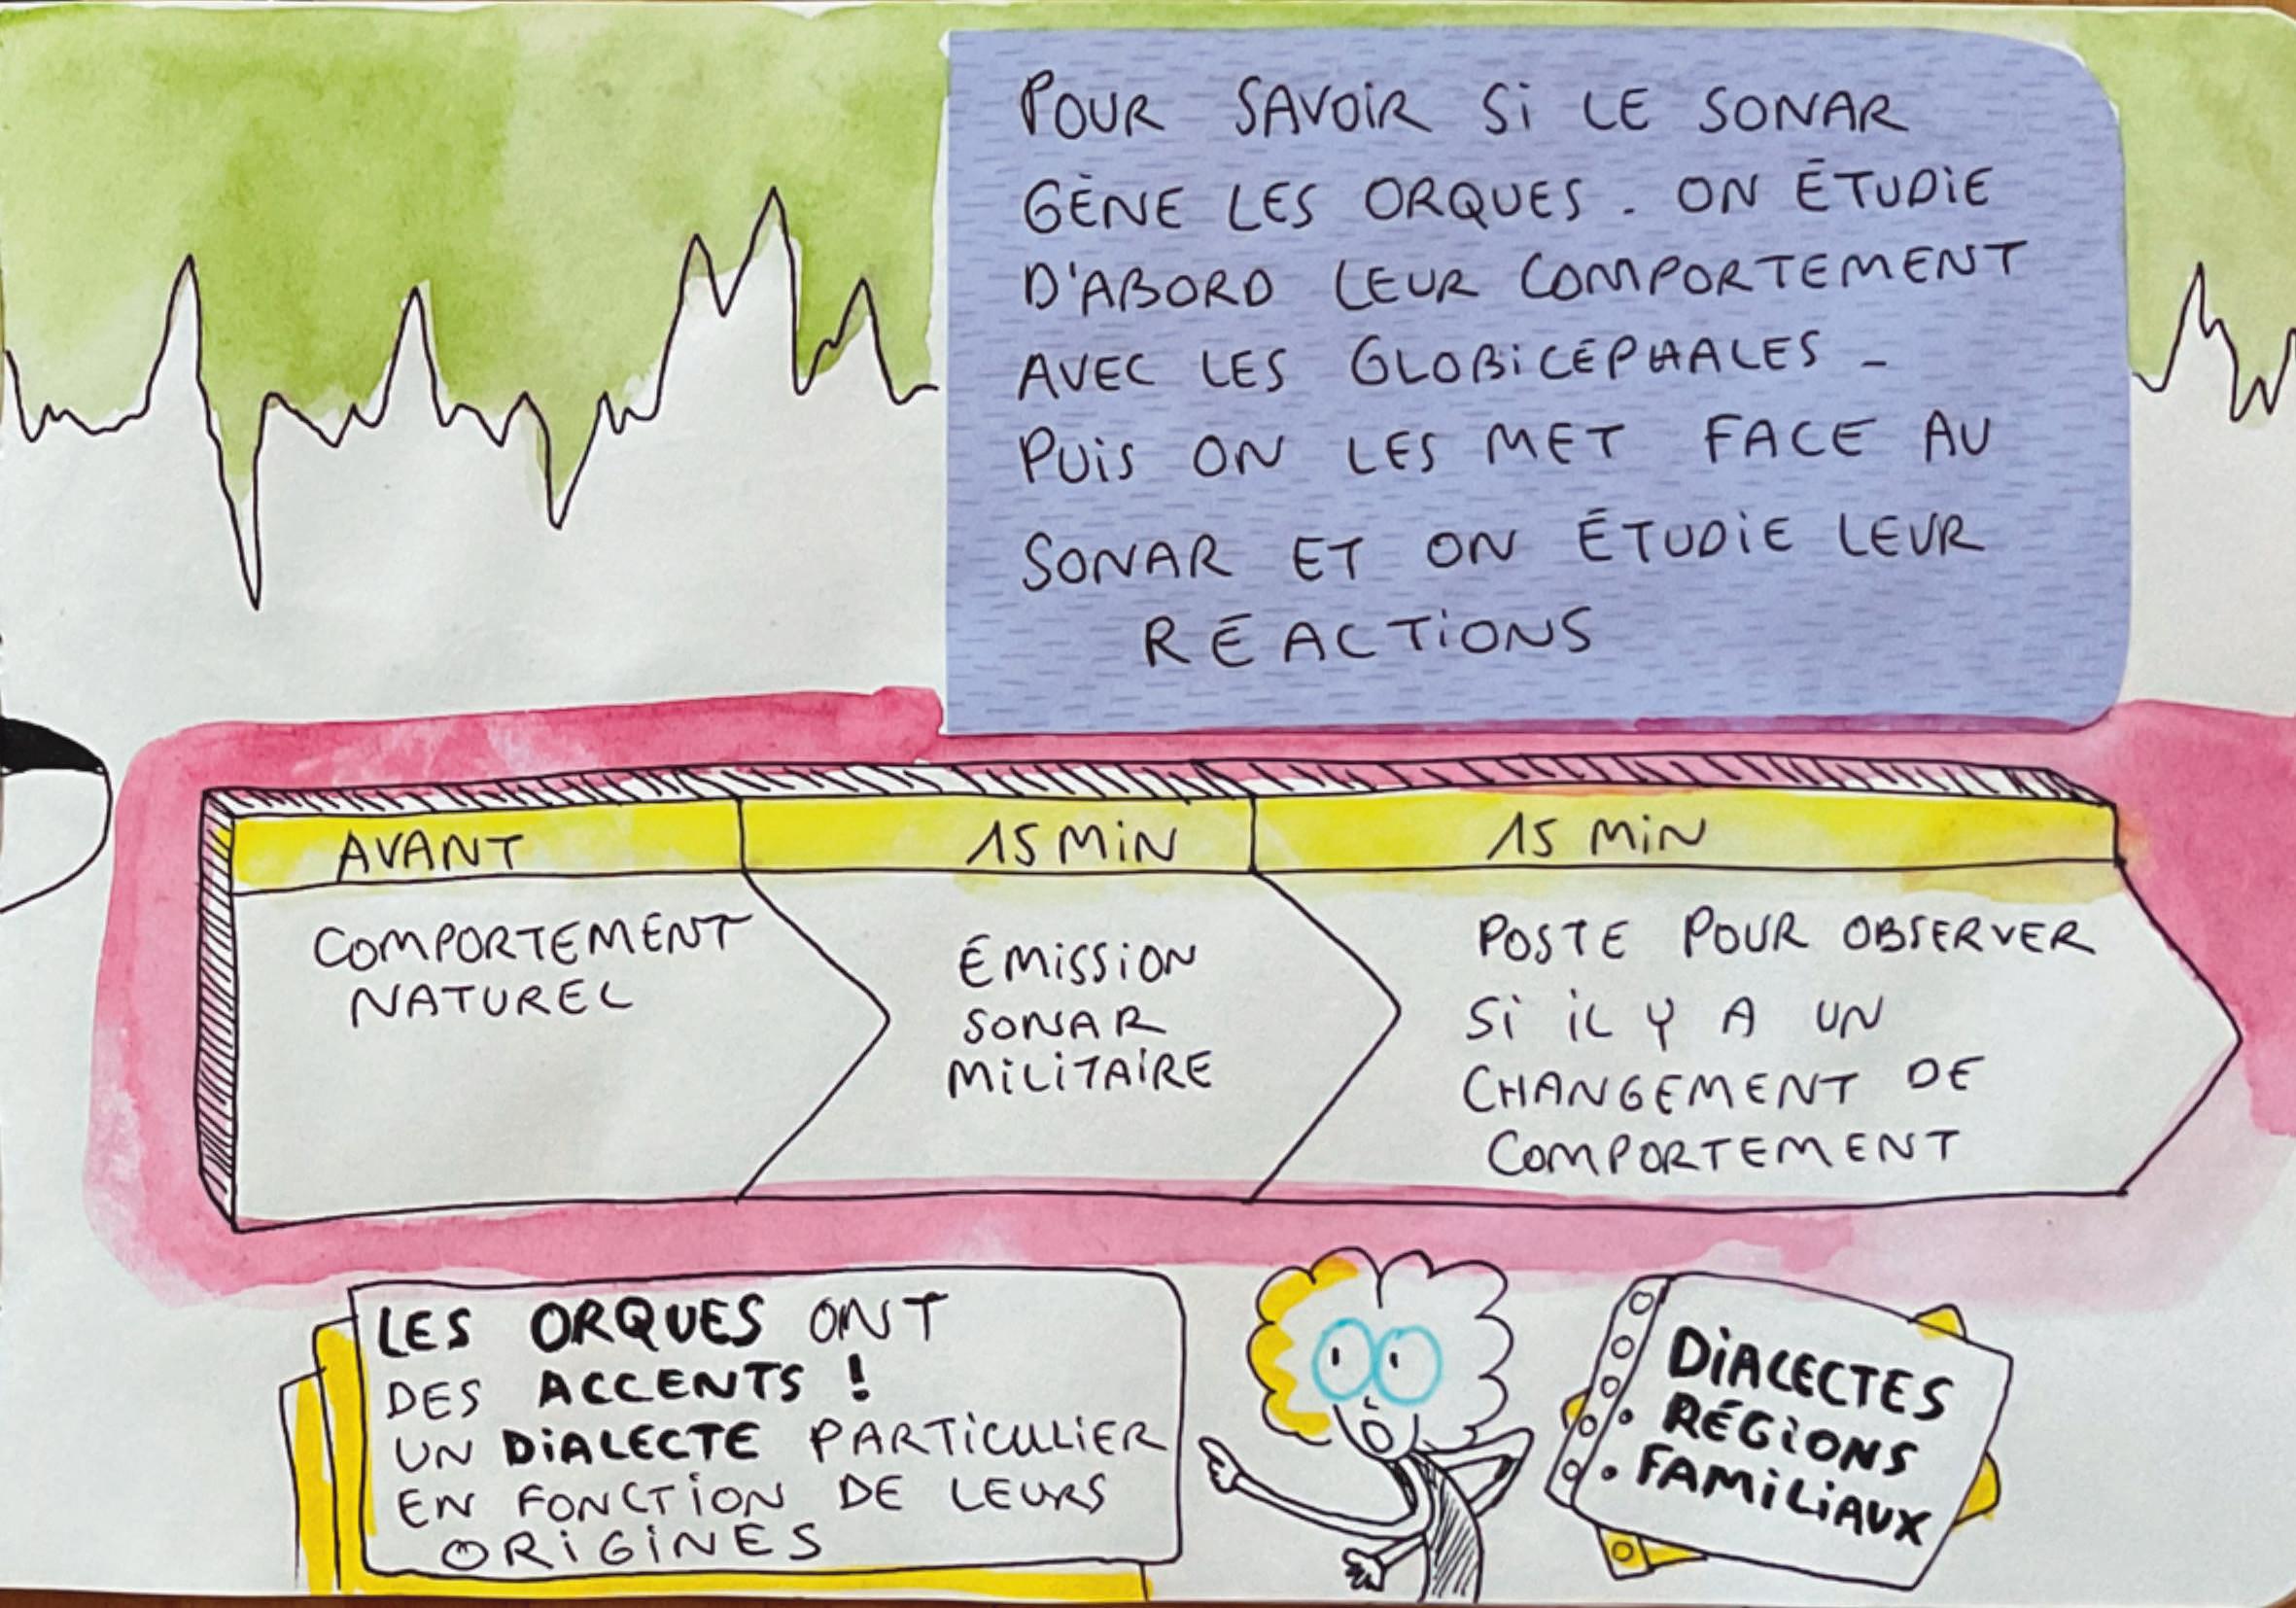 POUR SAVOIR SI LE SONAR
GÈNE LES ORQUES. ON ÉTUDIE
D'ABORD LEUR COMPORTEMENT
AVEC LES GLOBICÉPHALES -
PUIS ON LES MET FACE AU
SONAR ET ON ÉTUDIE LEUR
RÉACTIONS
AVANT
COMPORTEMENT
NATUREL
15 MIN
ÉMISSION
SONAR
MILITAIRE
15 MIN
POSTE POUR OBSERVER
SI IL Y A UN
CHANGEMENT DE
COMPORTEMENT
LES ORQUES ONT
DES ACCENTS !
UN DIALECTE PARTICULIER
EN FONCTION DE LEURS
ORIGINES
DIALECTES
• RÉGIONS
• FAMILIAUX